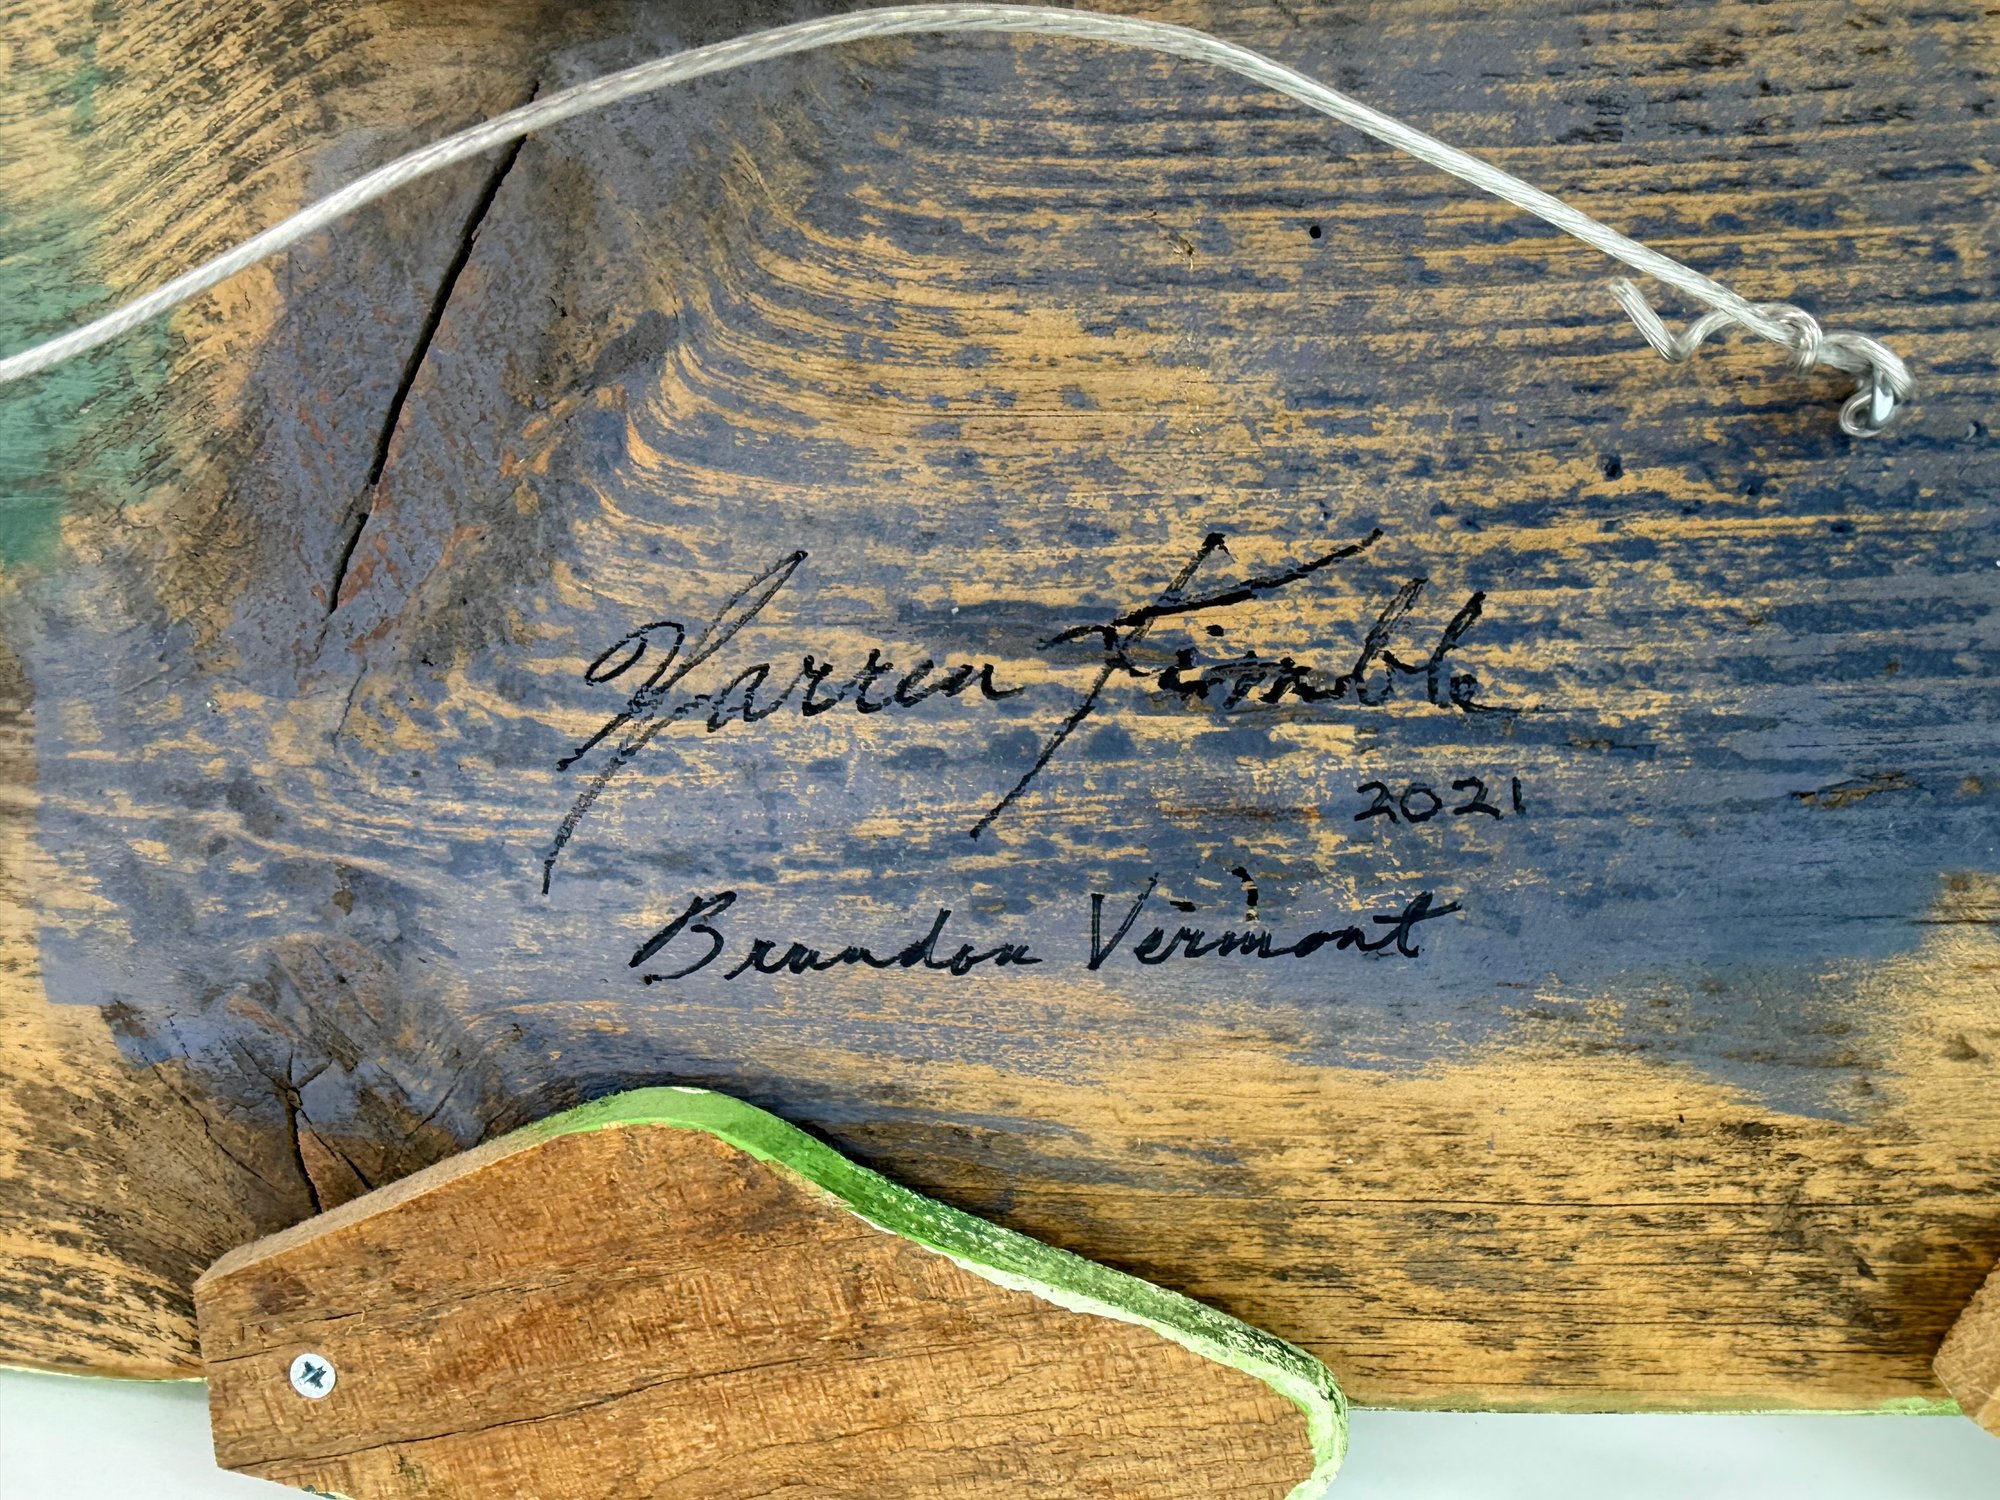 Warren Kimble
2021
Brandon Vermont